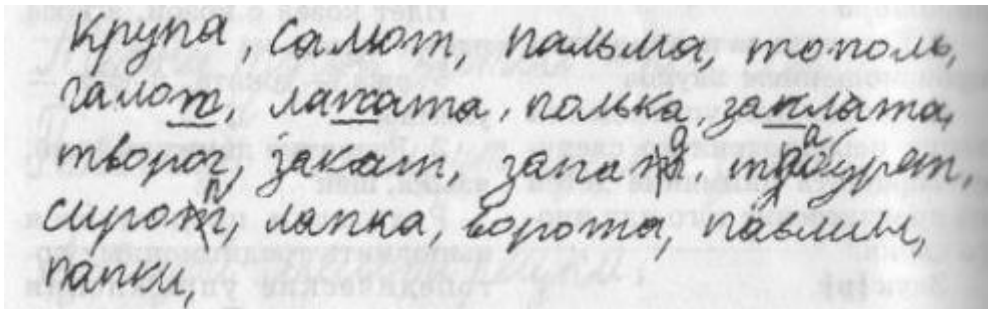 Крупа, салют, пальма, тополь,
галоп, лапата, полька, заплата,
творог, закат, запад, табурет,
сироп, лапка, ворота, павлин,
папки,